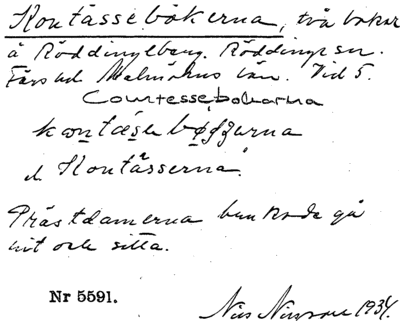 Kontässebökerna, två bokar
å Röddingeberg. Röddinge sn.
Färs hd Malmöhus län. Vid 5.
Courtessebokarna
kontäsebøgɡerna
el. Kontässerna.
Prästdamerna brukade gå
hit och sitta.
Nr 5591.
Nils Nilsson 1934.